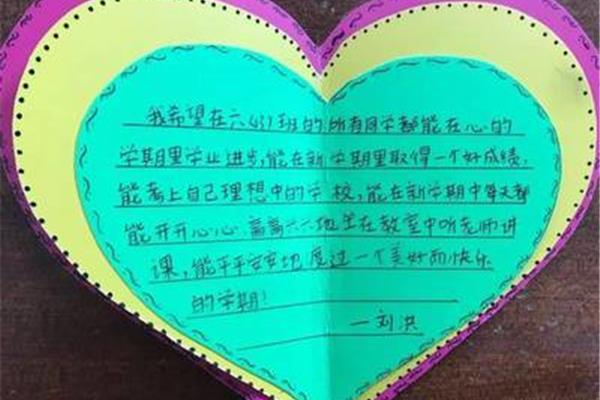 我希望在六(3)班的所有同学都能在心的
学期里学业进步,能在新学期里取得一个好成绩,
能考上自己理想中的学校,能在新学期中每天都
能开开心心、高高兴兴地坐在教室中听老师讲
课,能平平安安地度过一个美好而快乐
的学期!
—刘洪